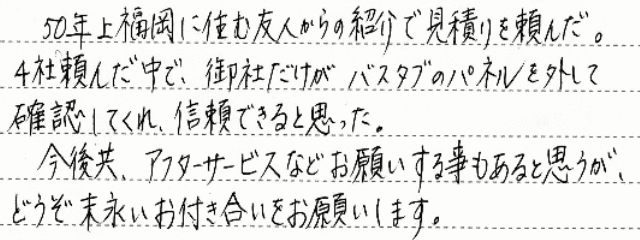 50年上福岡に住む友人からの紹介で見積りを頼んだ。
4社頼んだ中で、御社だけが バスタブのパネルを外して
確認してくれ、信頼できると思った。
今後共、アフターサービスなどお願いする事もあると思うが、
どうぞ末永いお付き合いをお願いします。